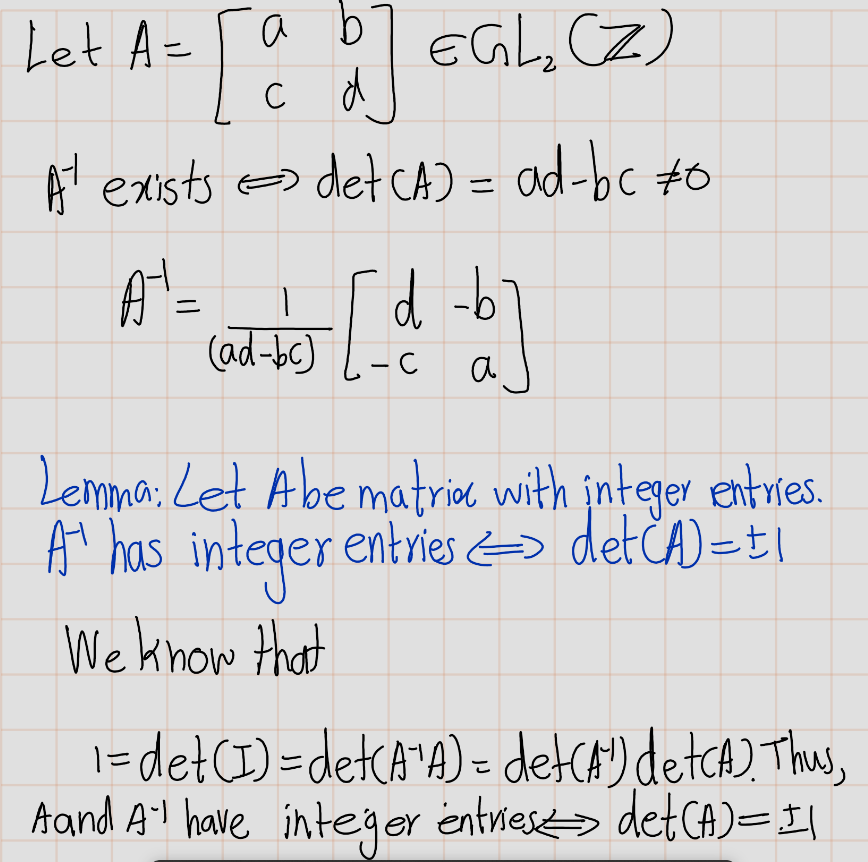 Let A = [a b
c d] ∈ GL₂(ℤ)
A⁻¹ exists ⟺ det(A) = ad-bc ≠0
A⁻¹ = 1/(ad-bc) [d -b
-c a]
Lemma: Let A be matrix with integer entries.
A⁻¹ has integer entries ⟺ det(A)=±1
We know that
1=det(I)=det(A⁻¹A)=det(A⁻¹)det(A). Thus,
A and A⁻¹ have integer entries ⟺ det(A)=±1